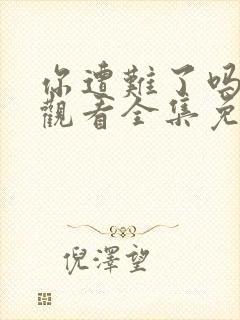 你遭難了嗎
觀看全集免
倪澤望